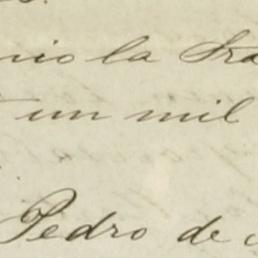 nio la Gra
un mil
Pedro de